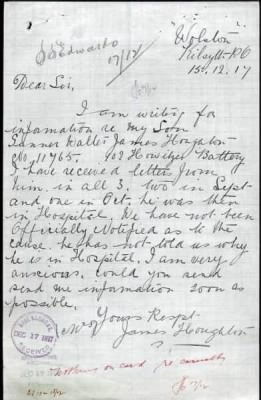 "Wolston"
Kilsyth Rd
15.12.17
J Edwards
17/12
Dear Sir,
I am writing for
infamation re my Son
Gunner Walter James Houghton
No, 11765. 102 Howitzer Battery
I have received letters from
him. in all 3. two in Sept
and one in Oct. he was then
in Hospital. We have not been
Officially Notified as to the
cause. he has not told us why
he is in Hospital. I am very
anxious. Could you send
send me information soon as
possible.
Yours Respt
James Houghton
DEC 17 1917
RECEIVED
Nothing on card re casualty